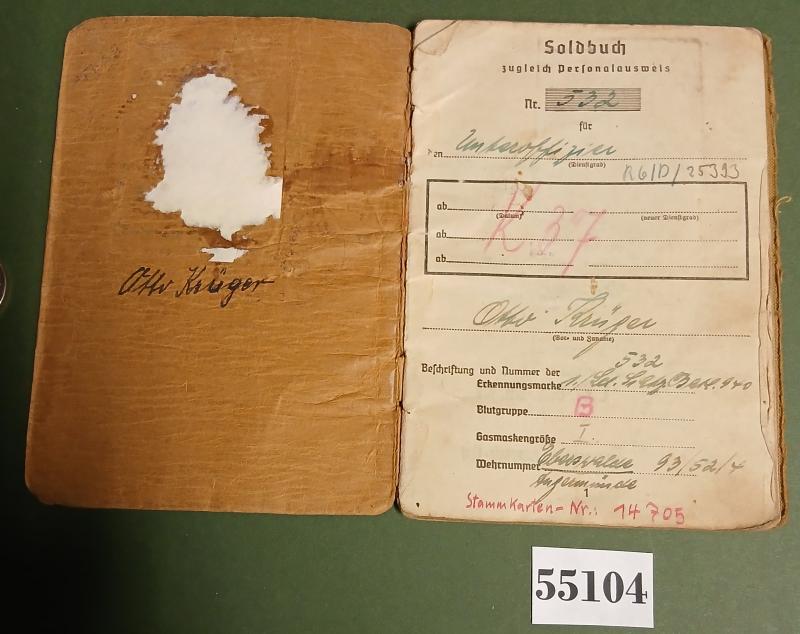 Otto Krüger
Soldbuch
zugleich Personalausweis
Nr. 532
für
en Unteroffizier
(Dienstgrad)
R6/D/25393
ab
(Datum) (neuer Dienstgrad)
ab
ab
K 37
Otto Krüger
(Vor- und Zuname)
532
Beschriftung und Nummer der
Erkennungsmarke 940
Blutgruppe B
Gasmaskengröße I.
Wehrnummer Eberswalde 93/52/4
Angermünde
1
Stammkarten-Nr.: 14705
55104